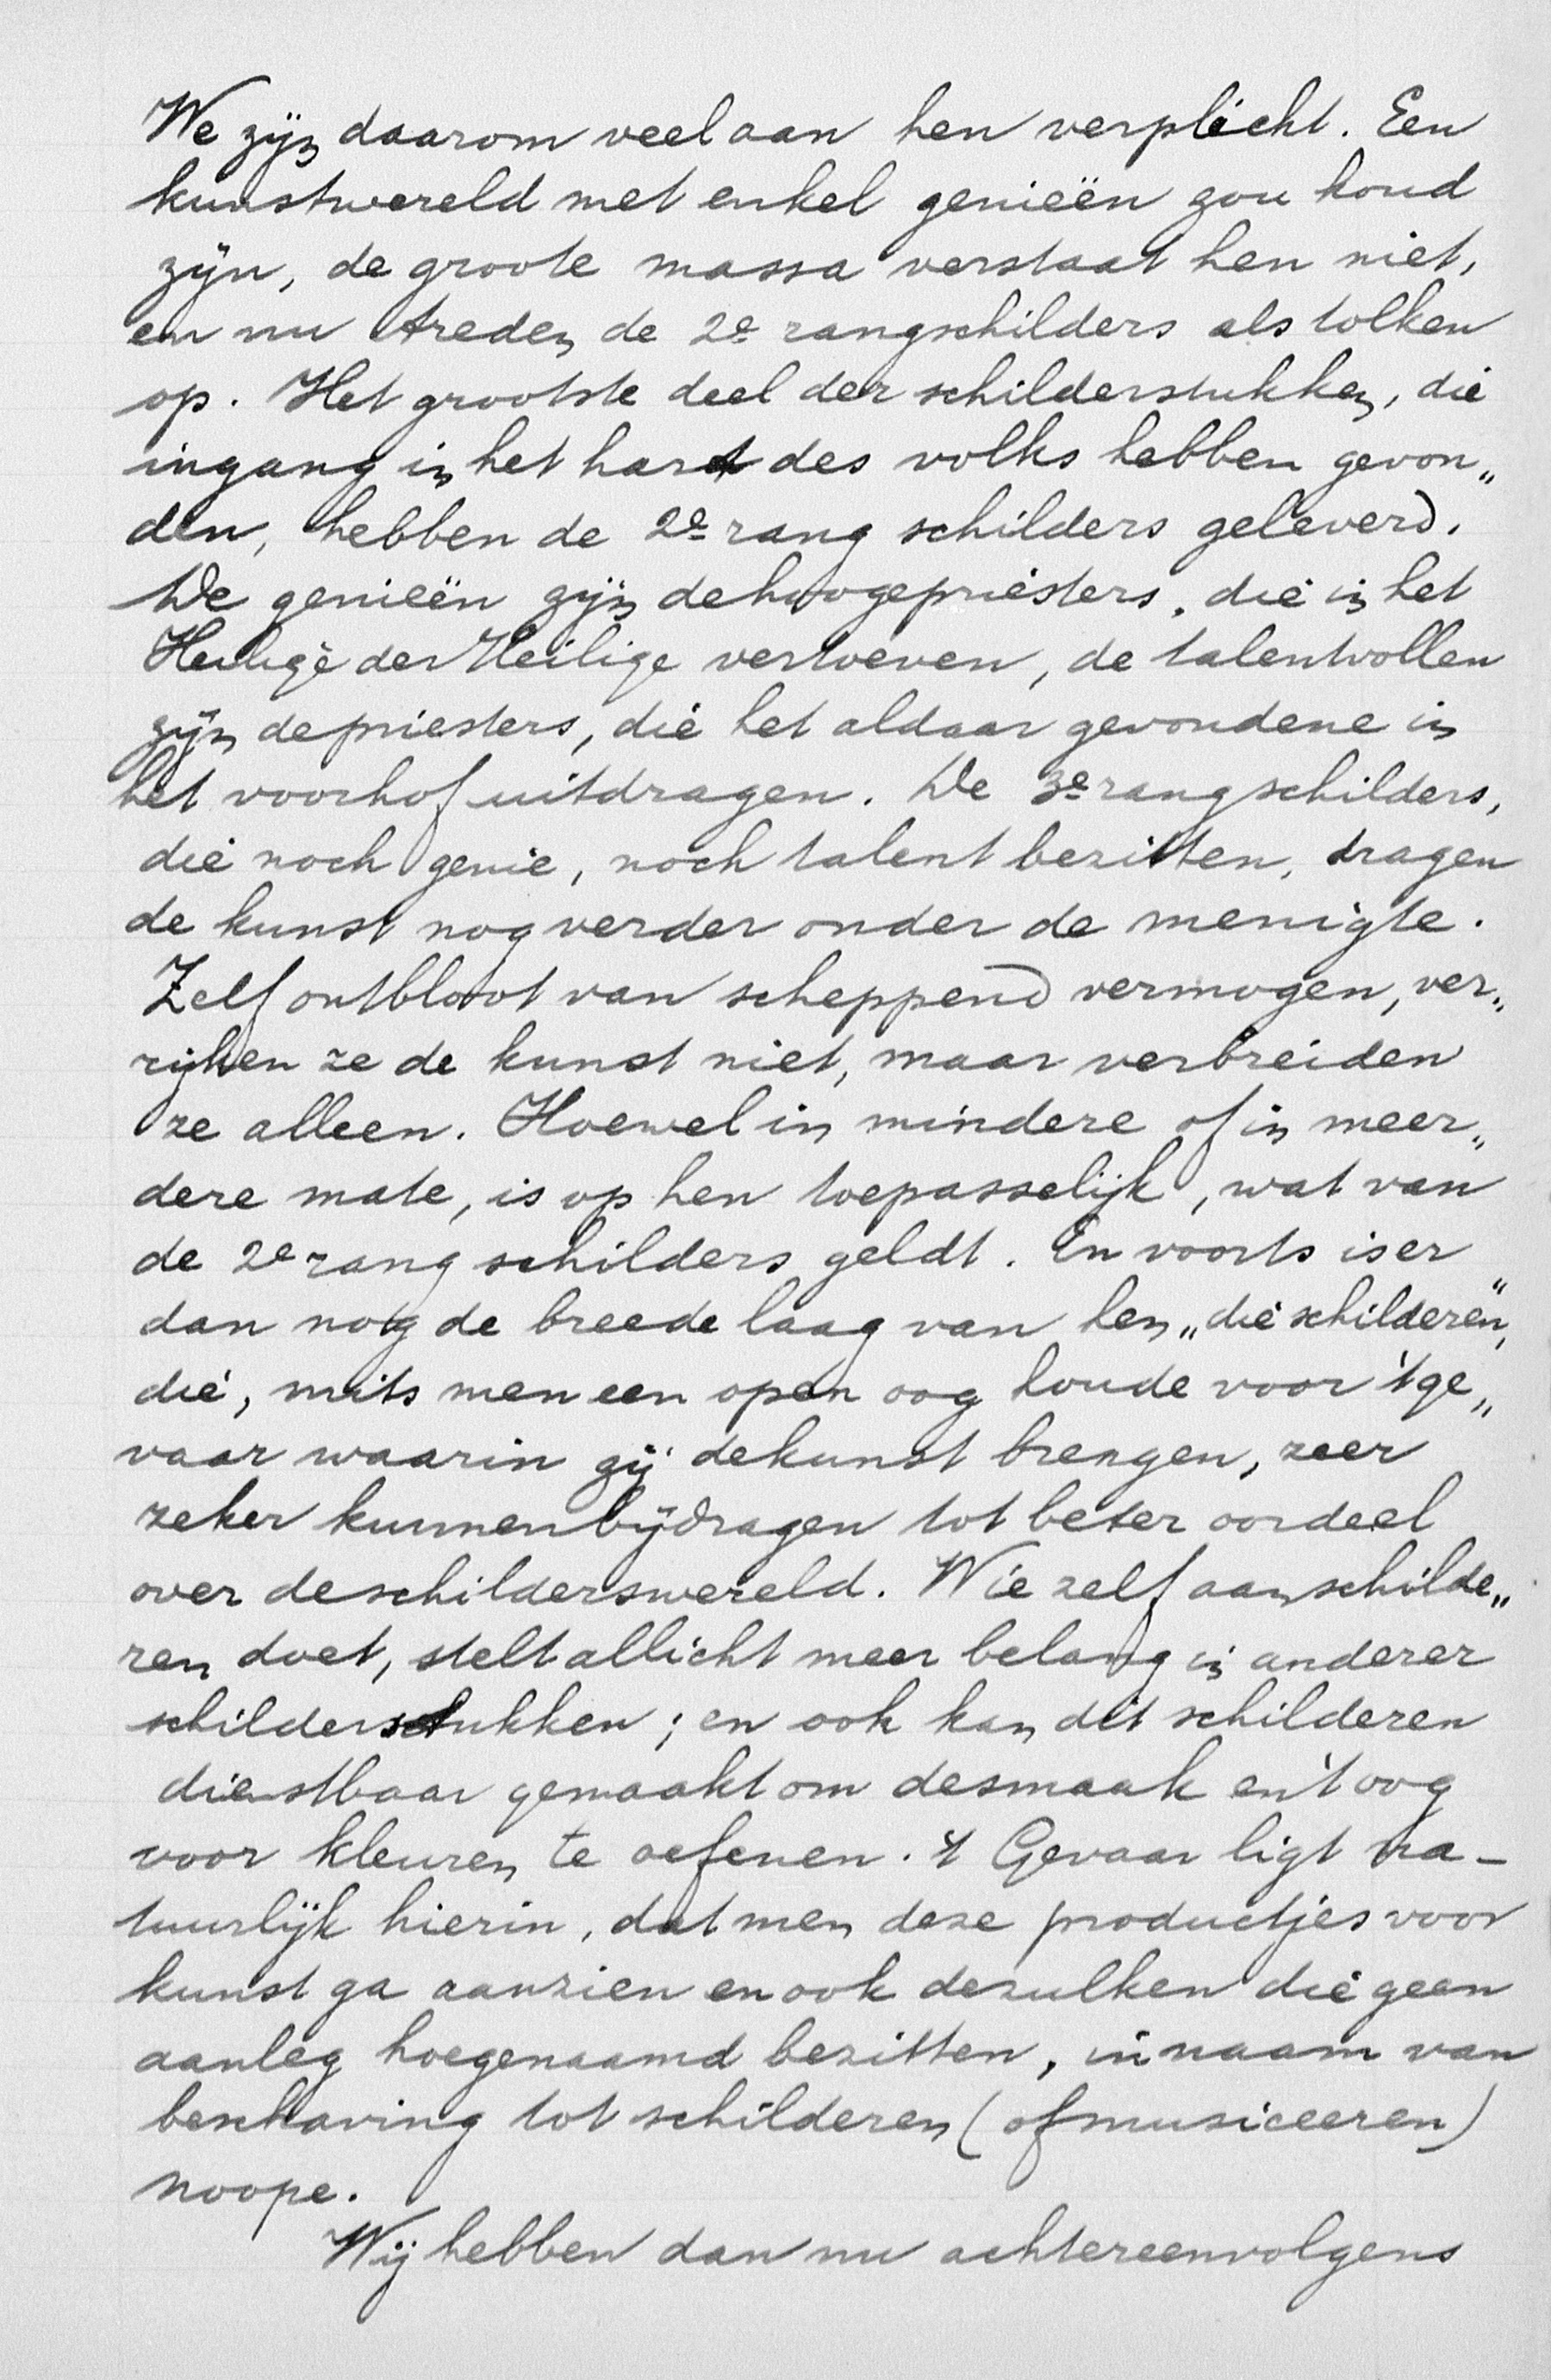 We zijn daarom veel aan hen verplicht. Een
kunstwereld met enkel genieën zou koud
zijn, de groote massa verstaat hen niet,
en nu treden de 2e rangschilders als tolken
op. Het grootste deel der schilderstukken, die
ingang in het hart des volks hebben gevon„
den, hebben de 2e rang schilders geleverd.
De genieën zijn de hoogepriesters, die in het
Heilige der Heilige vertoeven, de talentvollen
zijn de priesters, die het aldaar gevondene in
het voorhof uitdragen. De 3e rangschilders,
die noch genie, noch talent bezitten, dragen
de kunst nog verder onder de menigte.
Zelf ontbloot van scheppend vermogen, ver„
rijken ze de kunst niet, maar verbreiden
ze alleen. Hoewel in mindere of in meer„
dere mate, is op hen toepasselijk, wat van
de 2e rang schilders geldt. En voorts is er
dan nog de breede laag van hen „die schilderen",
die, mits men een open oog houde voor 't ge„
vaar waarin zij de kunst brengen, zeer
zeker kunnen bijdragen tot beter oordeel
over de schilderswereld. Wie zelf aan schilde„
ren doet, stelt allicht meer belang in anderer
schilderstukken; en ook kan dit schilderen
dienstbaar gemaakt om de smaak en 't oog
voor kleuren te oefenen. 't Gevaar ligt na-
tuurlijk hierin, dat men deze productjes voor
kunst ga aanzien en ook dezulken die geen
aanleg hoegenaamd bezitten, in naam van
beschaving tot schilderen (of musiceeren)
noope.
Wij hebben dan nu achtereenvolgens